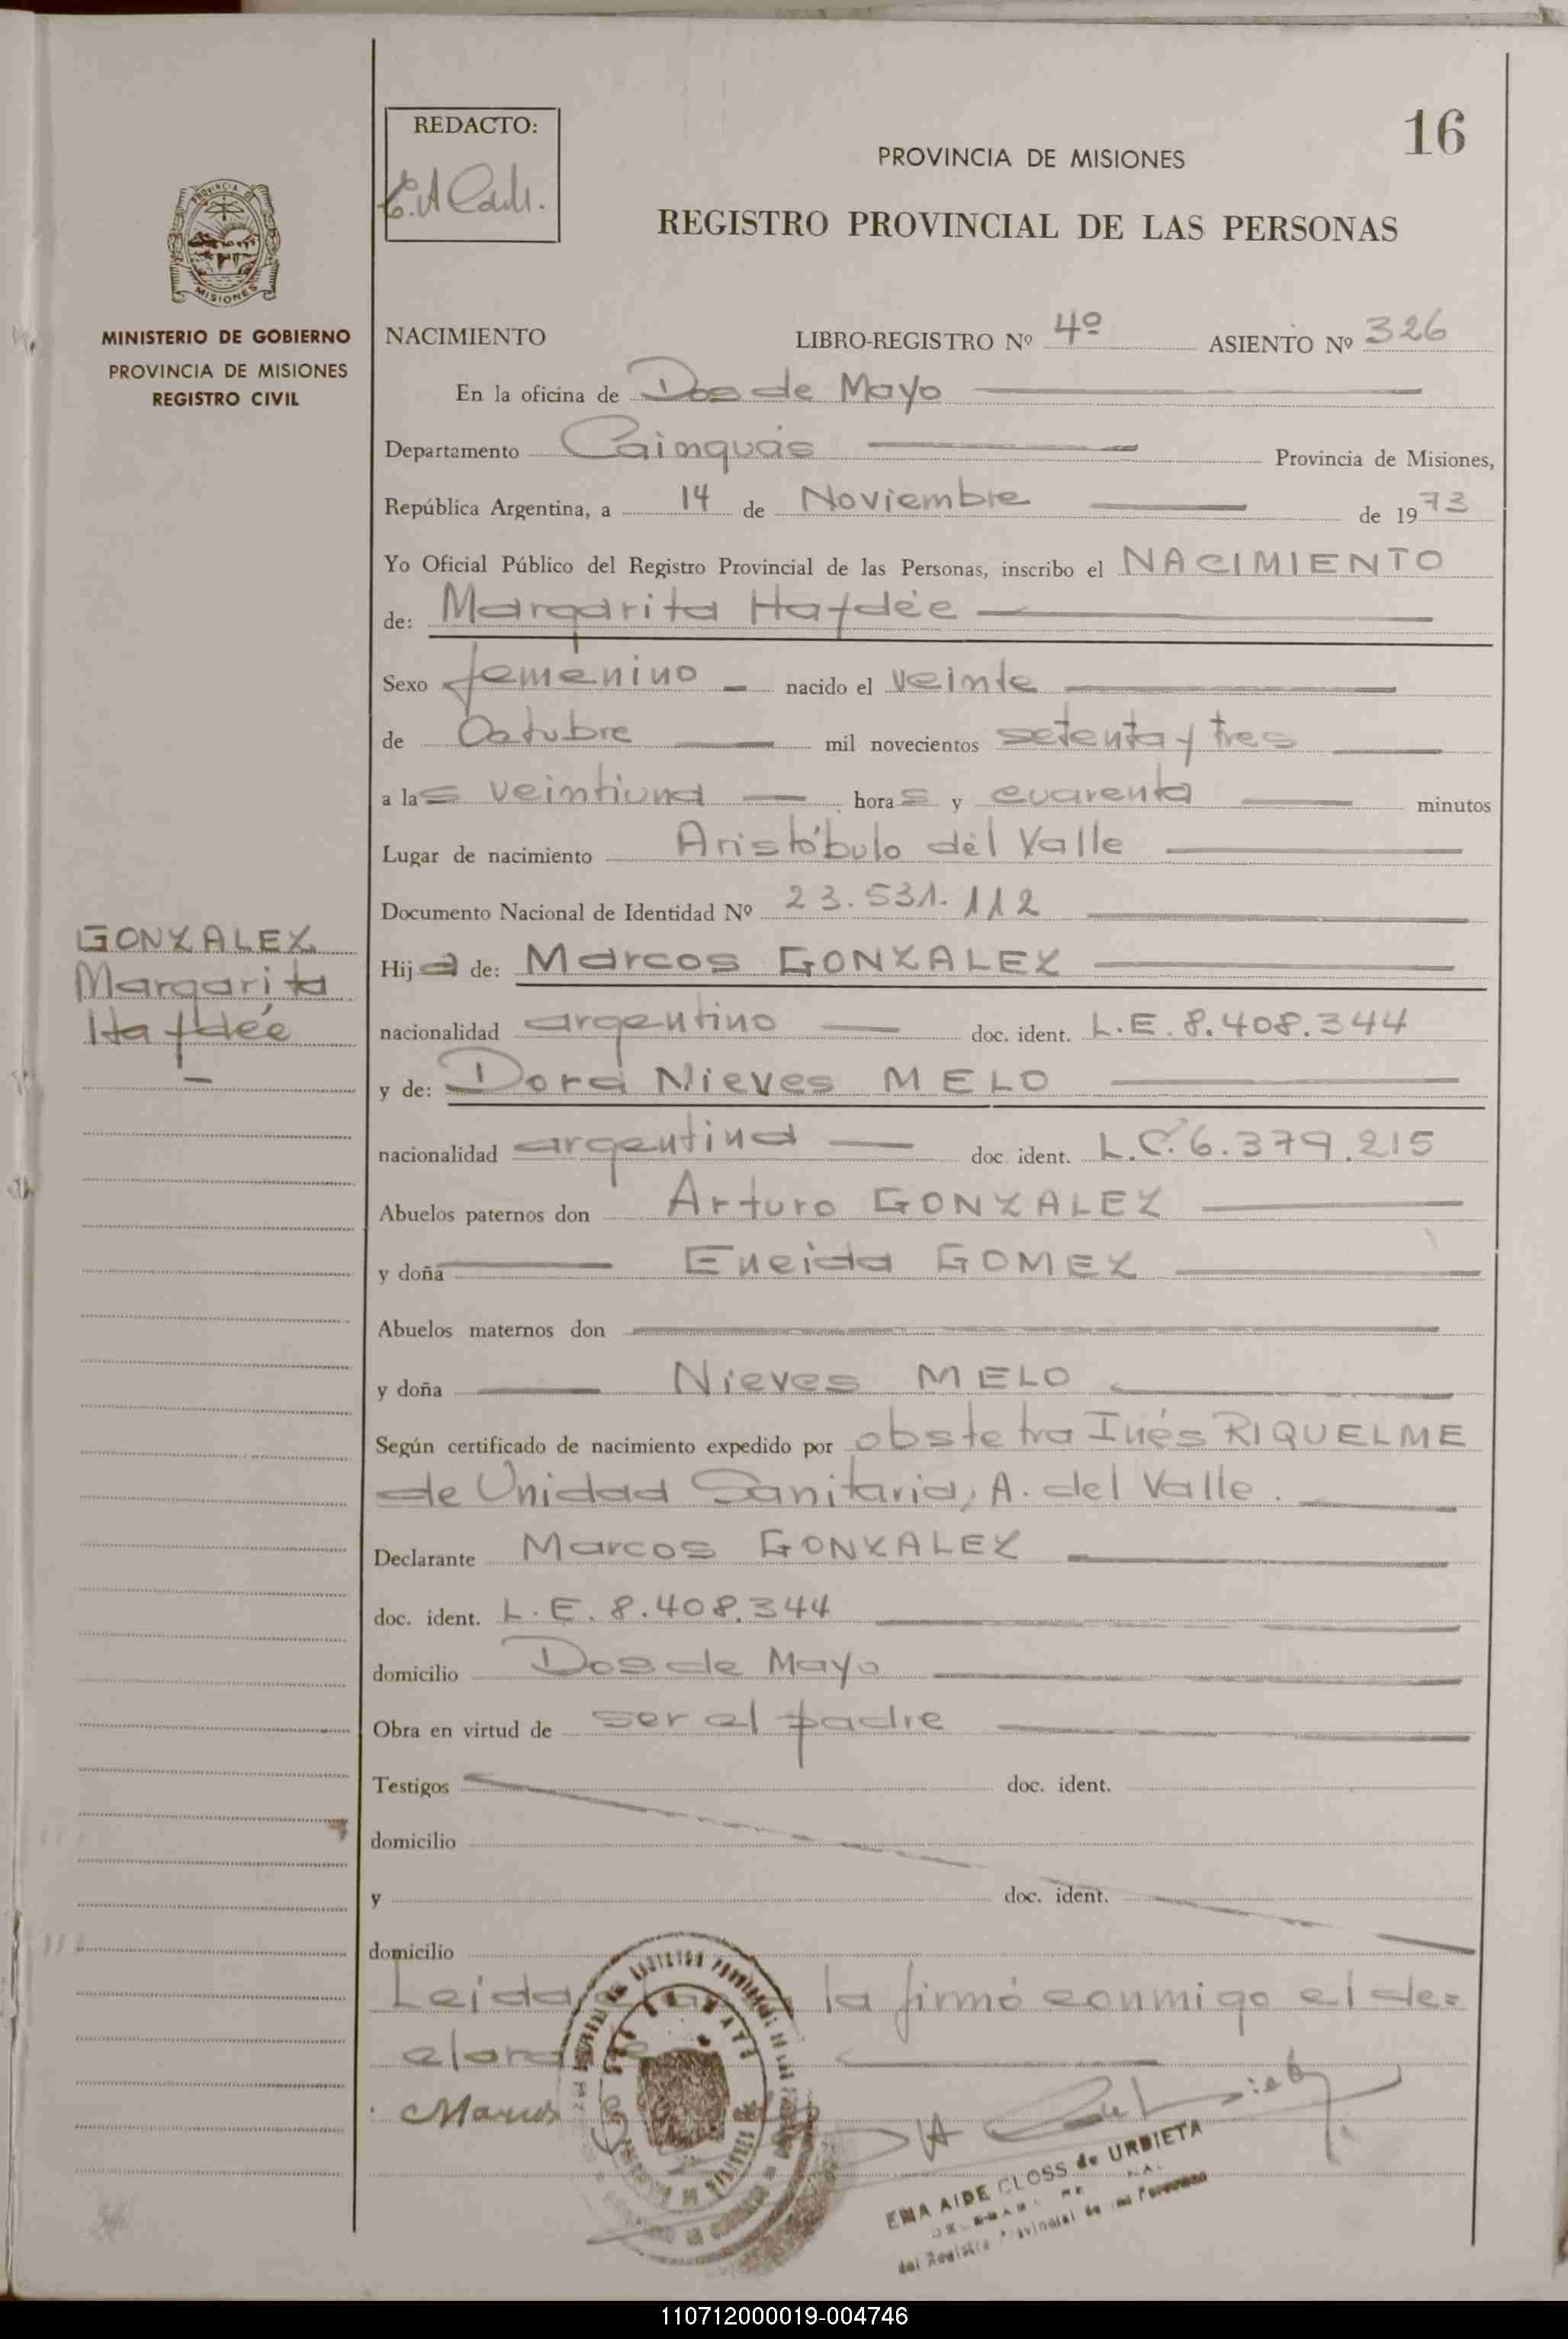 16
REDACTO:
PROVINCIA DE MISIONES
REGISTRO PROVINCIAL DE LAS PERSONAS
PROVINCIA DE
MISIONES
MINISTERIO DE GOBIERNO
PROVINCIA DE MISIONES
REGISTRO CIVIL
NACIMIENTO LIBRO-REGISTRO Nº 4º ASIENTO Nº 326
En la oficina de Dos de Mayo
Departamento Cainguás Provincia de Misiones,
República Argentina, a 14 de Noviembre de 1973
Yo Oficial Público del Registro Provincial de las Personas, inscribo el NACIMIENTO
de: Margarita Haydée
Sexo femenino - nacido el veinte
de Octubre mil novecientos setenta y tres
a las veintiuna horas y cuarenta minutos
Lugar de nacimiento Aristóbulo del Valle
Documento Nacional de Identidad Nº 23.531.112
GONZALEZ
Margarita
Haydée
Hija de: Marcos GONZALEZ
nacionalidad argentino doc. ident. L.E. 8.408.344
y de: Dora Nieves MELO
nacionalidad argentina doc. ident. L.C. 6.379.215
Abuelos paternos don Arturo GONZALEZ
y doña Eneida GOMEZ
Abuelos maternos don
y doña Nieves MELO
Según certificado de nacimiento expedido por obstetra Inés RIQUELME
de Unidad Sanitaria, A. del Valle.
Declarante Marcos GONZALEZ
doc. ident. L.E. 8.408.344
domicilio Dos de Mayo
Obra en virtud de ser el padre
Testigos doc. ident.
domicilio
y doc. ident.
domicilio
Leida la firmó conmigo el de=
Marcos
EMA AIDE CLOSS de URBIETA
del Registro Provincial de las Personas
110712000019-004746